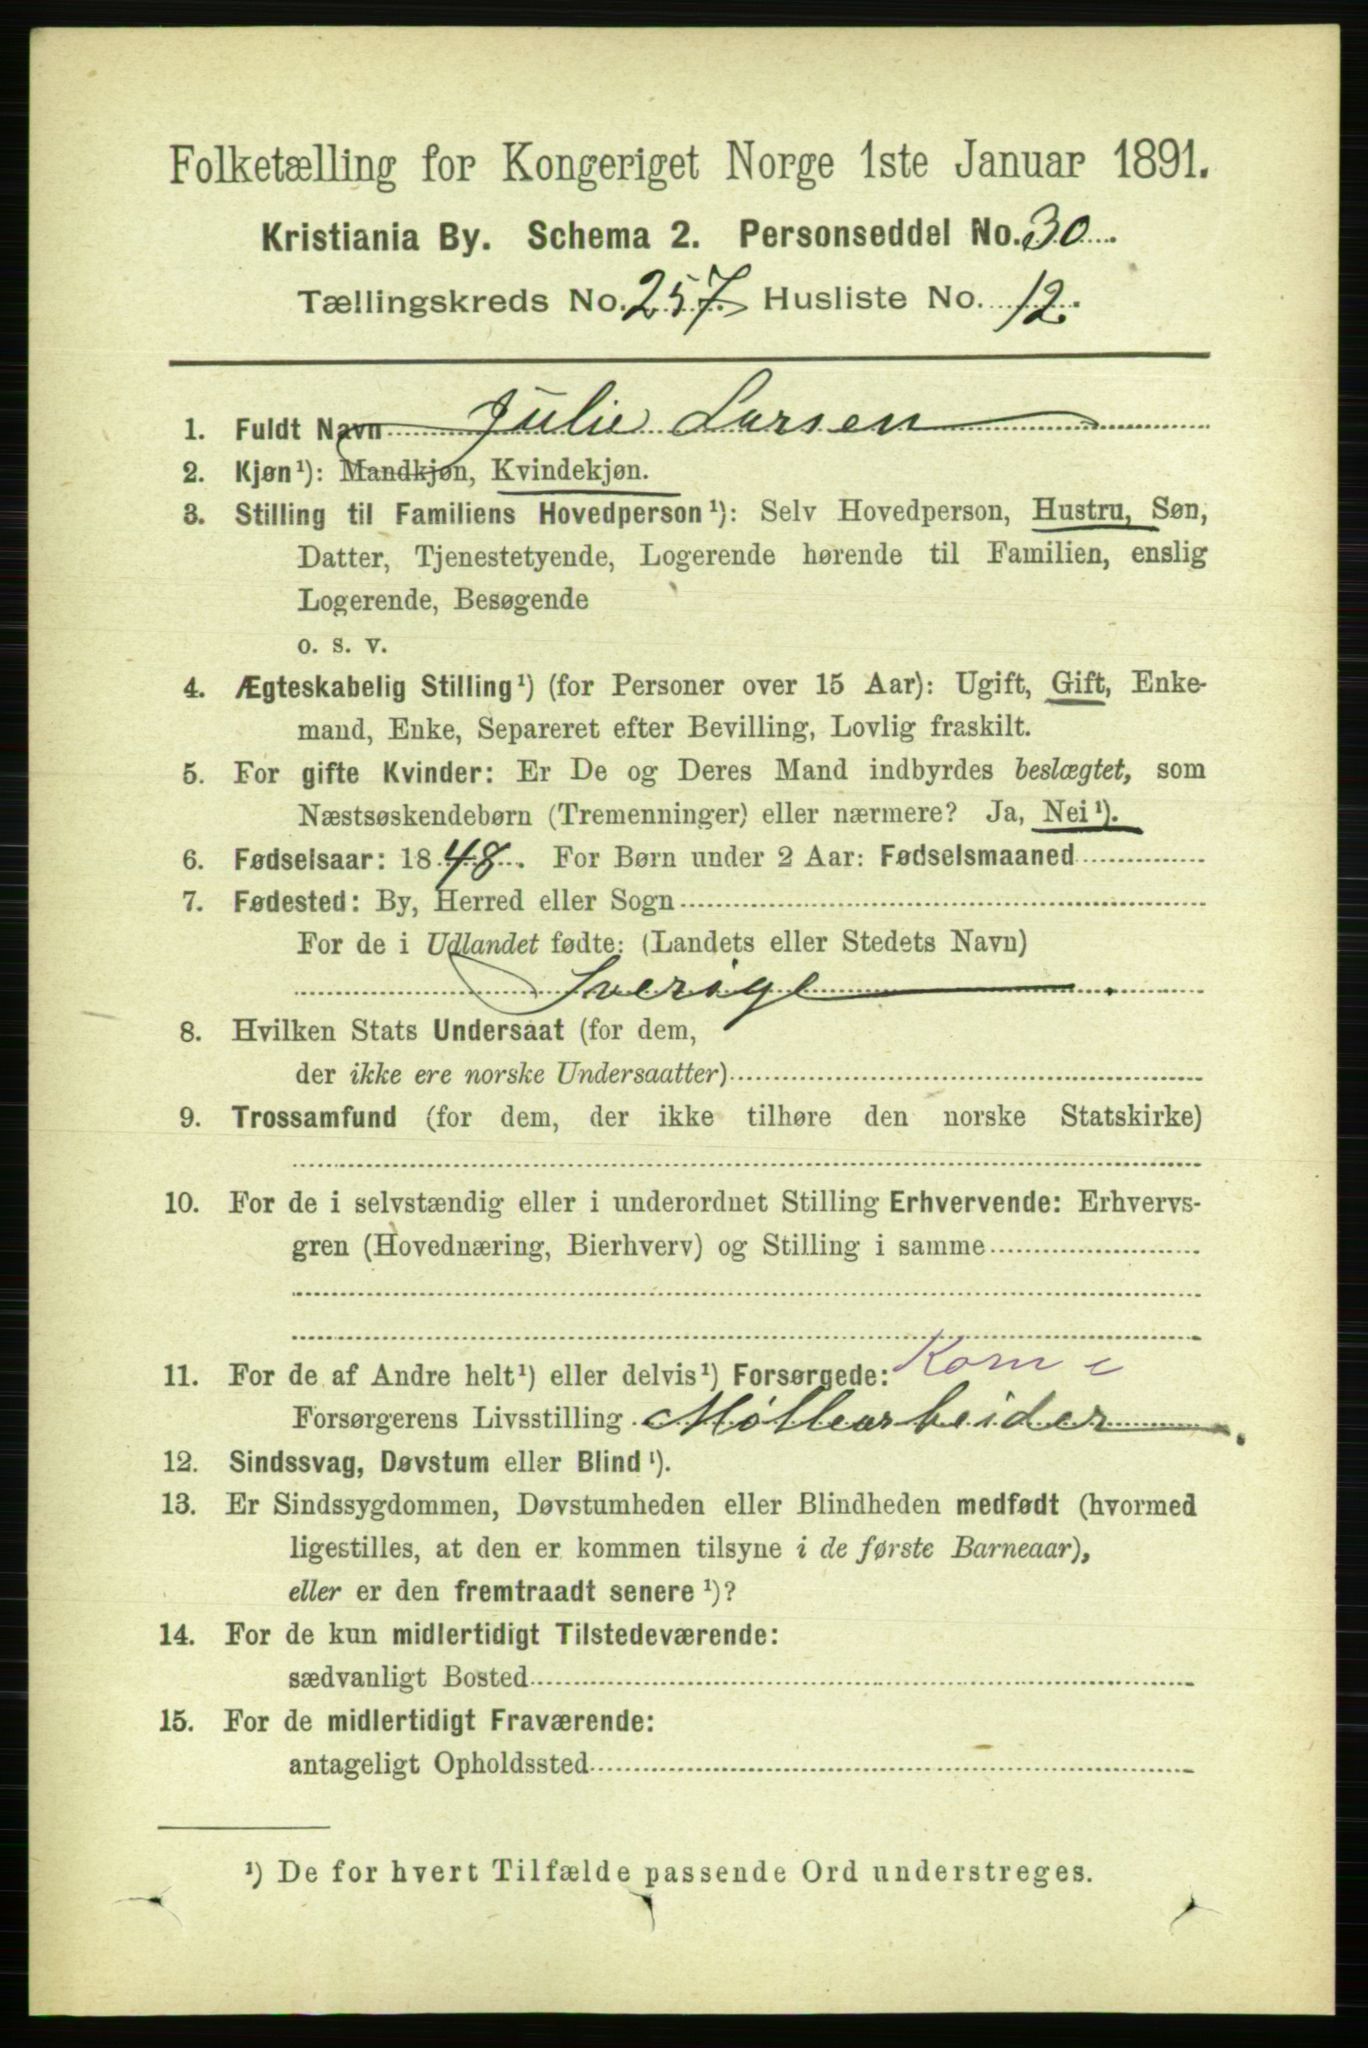 Folketælling for Kongeriget Norge 1ste Januar 1891.
Kristiania By. Schema 2. Personseddel No. 30
Tællingskreds No. 257 Husliste No. 12.
1. Fuldt Navn Julie Larsen
2. Kjøn¹): Mandkjøn, Kvindekjøn.
3. Stilling til Familiens Hovedperson¹): Selv Hovedperson, Hustru, Søn,
Datter, Tjenestetyende, Logerende hørende til Familien, enslig
Logerende, Besøgende
o. s. v.
4. Ægteskabelig Stilling¹) (for Personer over 15 Aar): Ugift, Gift, Enke-
mand, Enke, Separeret efter Bevilling, Lovlig fraskilt.
5. For gifte Kvinder: Er De og Deres Mand indbyrdes beslægtet, som
Næstsøskendebørn (Tremenninger) eller nærmere? Ja, Nei¹).
6. Fødselsaar: 1848. For Børn under 2 Aar: Fødselsmaaned
7. Fødested: By, Herred eller Sogn
For de i Udlandet fødte: (Landets eller Stedets Navn)
Sverige
8. Hvilken Stats Undersaat (for dem,
der ikke ere norske Undersaatter)
9. Trossamfund (for dem, der ikke tilhøre den norske Statskirke)
10. For de i selvstændig eller i underordnet Stilling Erhvervende: Erhvervs-
gren (Hovednæring, Bierhverv) og Stilling i samme
11. For de af Andre helt¹) eller delvis¹) Forsørgede: Korn
Forsørgerens Livsstilling Møllearbeider.
12. Sindssvag, Døvstum eller Blind¹).
13. Er Sindssygdommen, Døvstumheden eller Blindheden medfødt (hvormed
ligestilles, at den er kommen tilsyne i de første Barneaar),
eller er den fremtraadt senere¹)?
14. For de kun midlertidigt Tilstedeværende:
sædvanligt Bosted
15. For de midlertidigt Fraværende:
antageligt Opholdssted
¹) De for hvert Tilfælde passende Ord understreges.